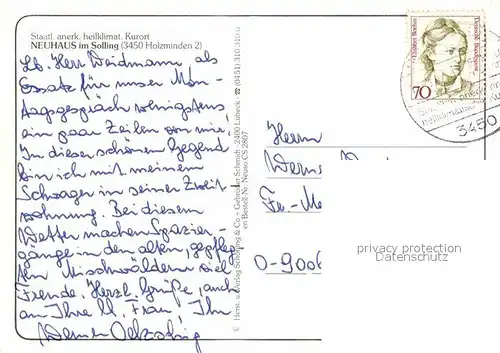 Staatl. anerk. heilklimat. Kurort
NEUHAUS im Solling (3450 Holzminden 2)
Lb. Herr Weidmann, als
Ersatz für unser Mon-
tagsgespräch wenigstens
ein paar Zeilen von mir.
In dieser schönen Gegend
bin ich mit meinem
Schwager in seiner Zweit
wohnung. Bei diesem
Wetter machen Spazier-
gänge in den alten, gepfleg
ten Mischwäldern viel
Freude. Herzl. Grüße, auch
an Ihre lb. Frau, Ihr
Werner
Herrn
Fr.-Me
D-900
70
Deutsche Bundespost
3450
privacy protection
Datenschutz